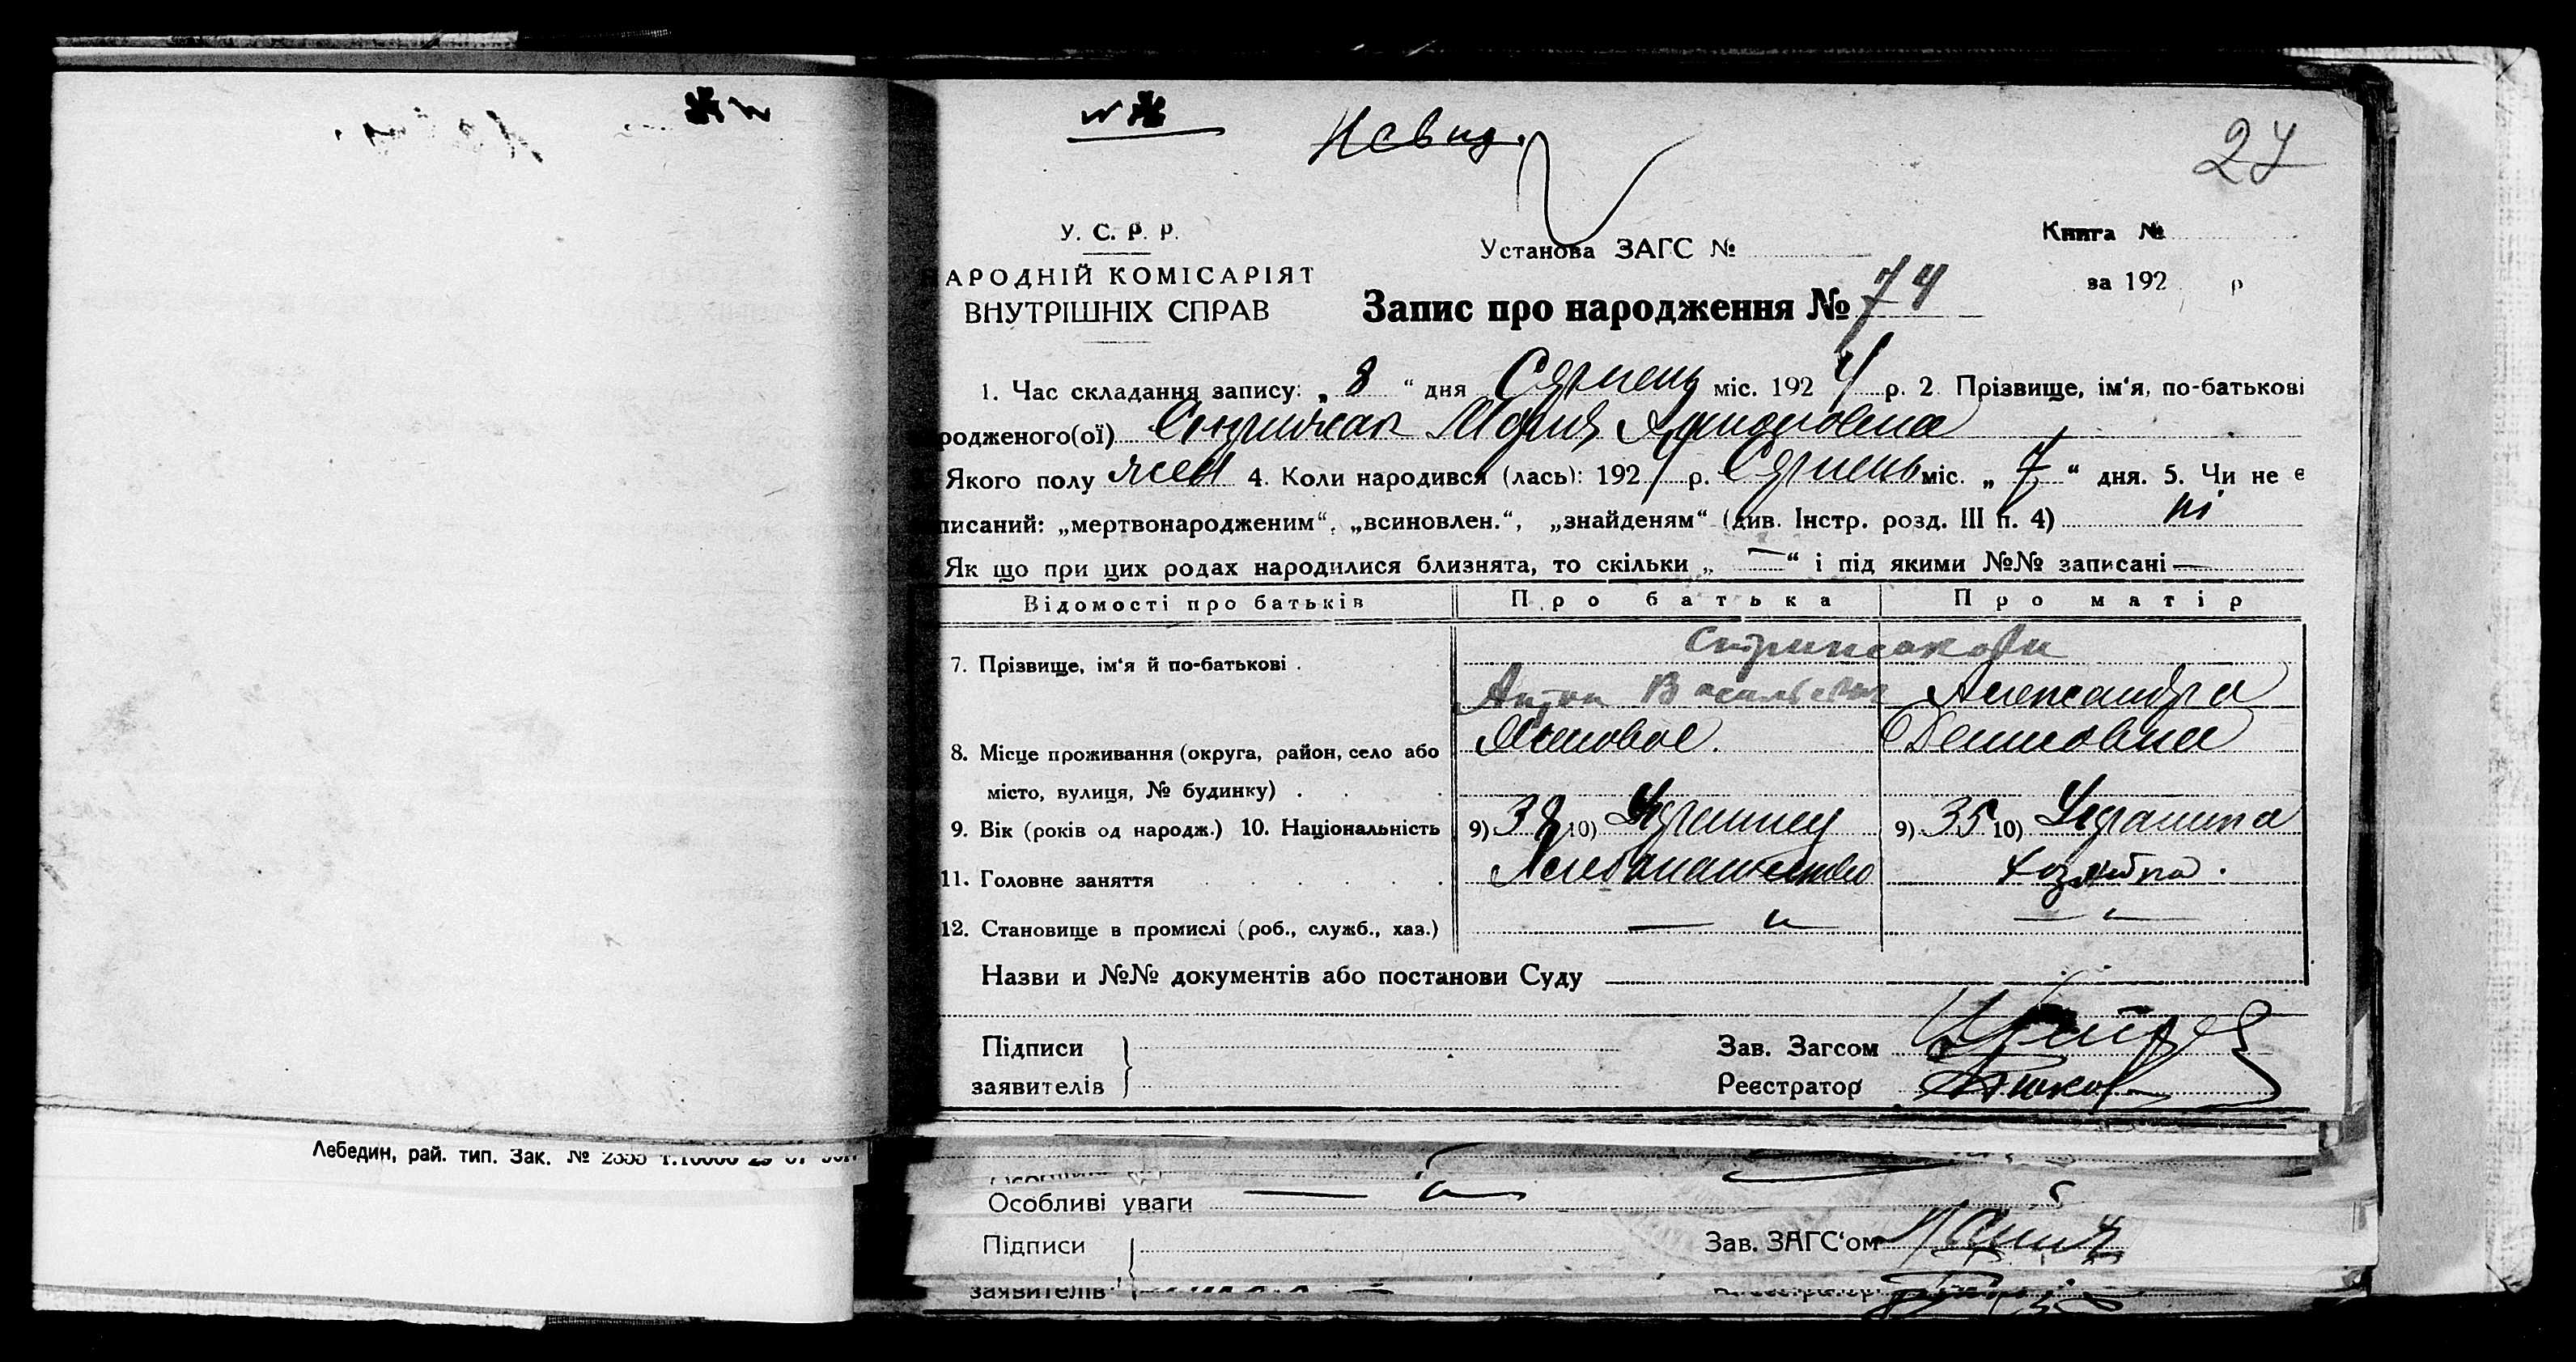 27
У. С. Р. Р.
АРОДНІЙ КОМІСАРІЯТ
ВНУТРІШНІХ СПРАВ
Установа ЗАГС №
Книга №
за 192 р
Запис про народження № 74
1. Час складання запису: „ 8 “ дня Серпень міс. 192 4 р. 2. Прізвище, ім‘я, по-батькові
родженого(ої) Мария Антоновна
Якого полу жен 4. Коли народився (лась): 192 р. Серпень міс. „ 7 “ дня. 5. Чи не є
писаний: „мертвонародженим“, „всиновлен.“, „знайденям“ (див. Інстр. розд. III п. 4) ні
Як що при цих родах народилися близнята, то скільки „ — “ і під якими №№ записані —
Відомості про батьків Про батька Про матір
7. Прізвище, ім‘я й по-батькові .
Антон Васильевич Александра
Денисовна
8. Місце проживання (округа, район, село або
місто, вулиця, № будинку) .
9. Вік (років од народж.) 10. Національність 9) 38 10) Украинец 9) 35 10) Украинка
11. Головне заняття Хлебопашество Хозяйка.
12. Становище в промислі (роб., служб., хаз.) — „ — „ —
Назви и №№ документів або постанови Суду
Підписи
заявителів
Зав. Загсом
Реєстратор
Лебедин, рай. тип. Зак. №
Особливі уваги — „ —
Підписи
Зав. ЗАГС‘ом
заявителів